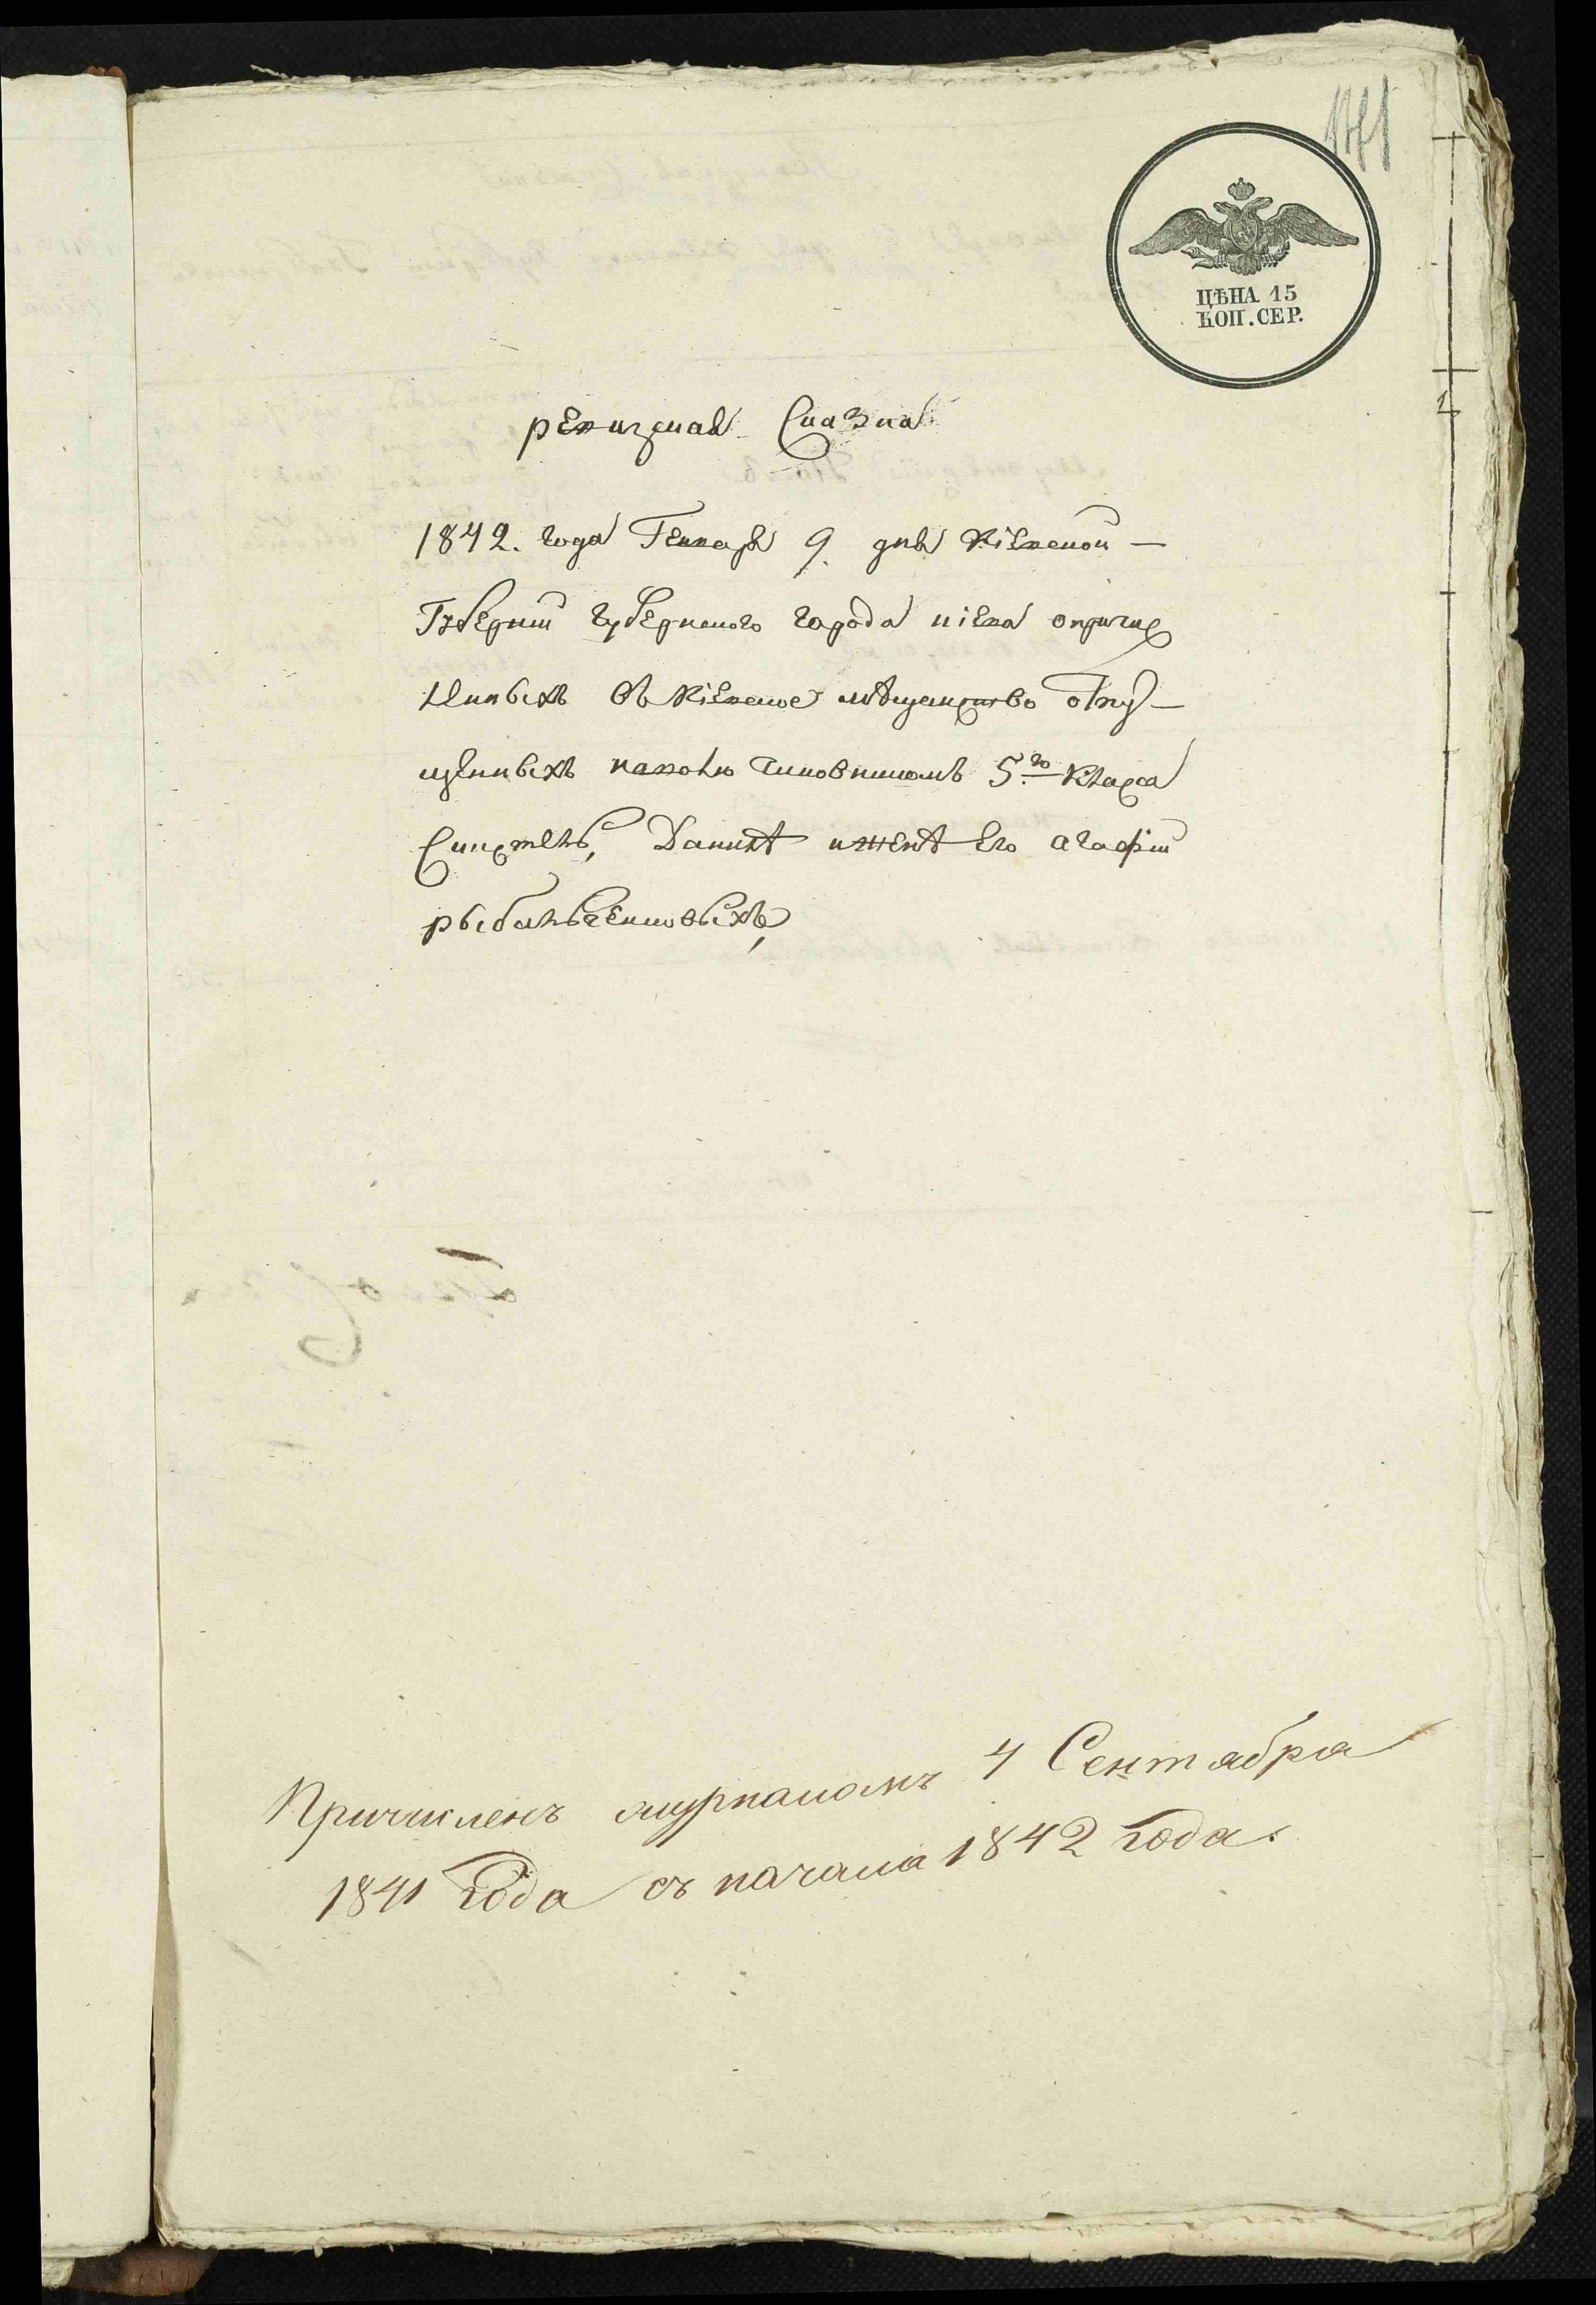 ЦѢНА 15
КОП. СЕР.
ревизская Сказка
1842. года Генваря 9. дня Кіевской —
Губернии губернского города кіева о причис
ленныхъ въ Кіевское мѣщенство отпу-
щенныхъ наволю Чиновникомъ 5.го Класа
Данилѣ иженѣ Его агафіи
рыбальченковыхъ,
Причисленъ журналомъ 4 Сентября
1841 года съ начала 1842 года.